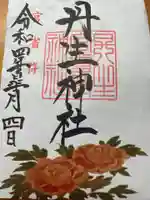 丹生神社
令和四年五月四日